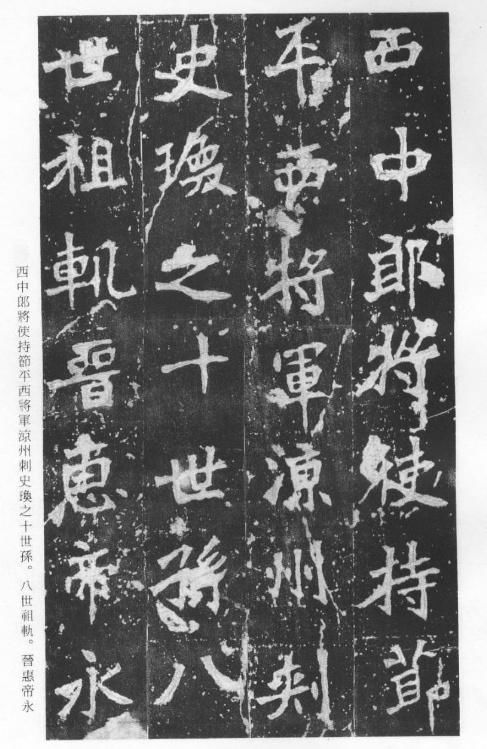 西中郎將使持節
平西將軍涼州刺
史瓊之十世孫八
世祖軌晉惠帝永
西中郎將使持節平西將軍涼州刺史瓊之十世孫。八世祖軌。晉惠帝永